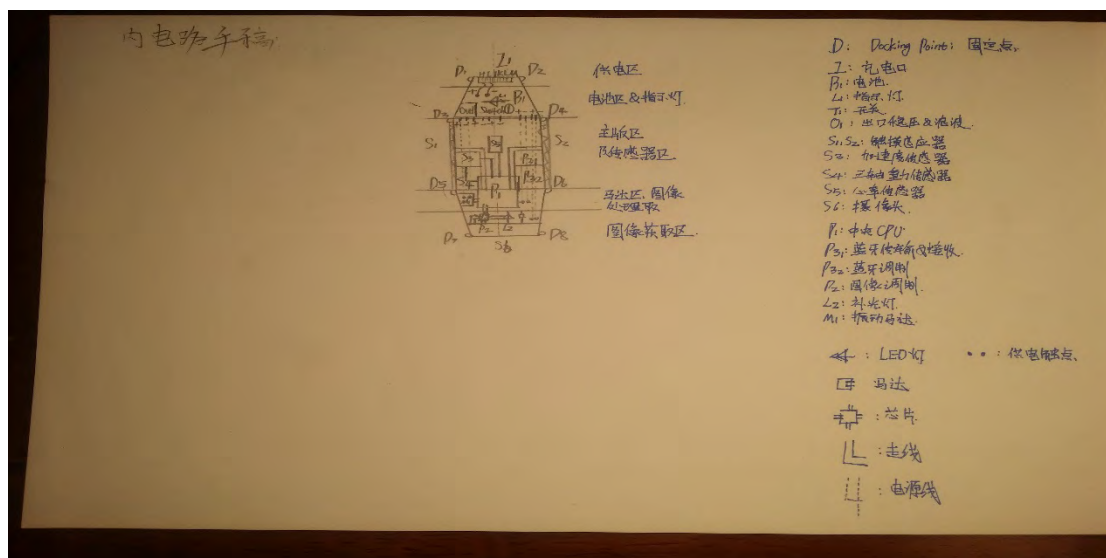 内电路手稿
I1
D1 D2
B1
D3 D4
S1 S2
S3
P31
P32
D5 D6
P1
P2 L2
D7 D8
S6
供电区
电池区&指示灯
主版区
及传感器区
马达区、图像
处理
图像获取区
D: Docking Point: 固定点、
I: 充电口
B1: 电池.
L1: 指示灯
T1: 开关
O1: 出口稳压&滤波.
S1,S2: 触摸感应器
S3: 加速度传感器
S4: 三轴重力传感器
S5: 心率传感器
S6: 摄像头.
P1: 中央CPU
P31: 蓝牙传输&接收.
P32: 蓝牙调制
P2: 图像调制.
L2: 补光灯.
M1: 振动马达.
: LED灯
••: 供电触点、
马达
: 芯片
: 走线
: 电源线